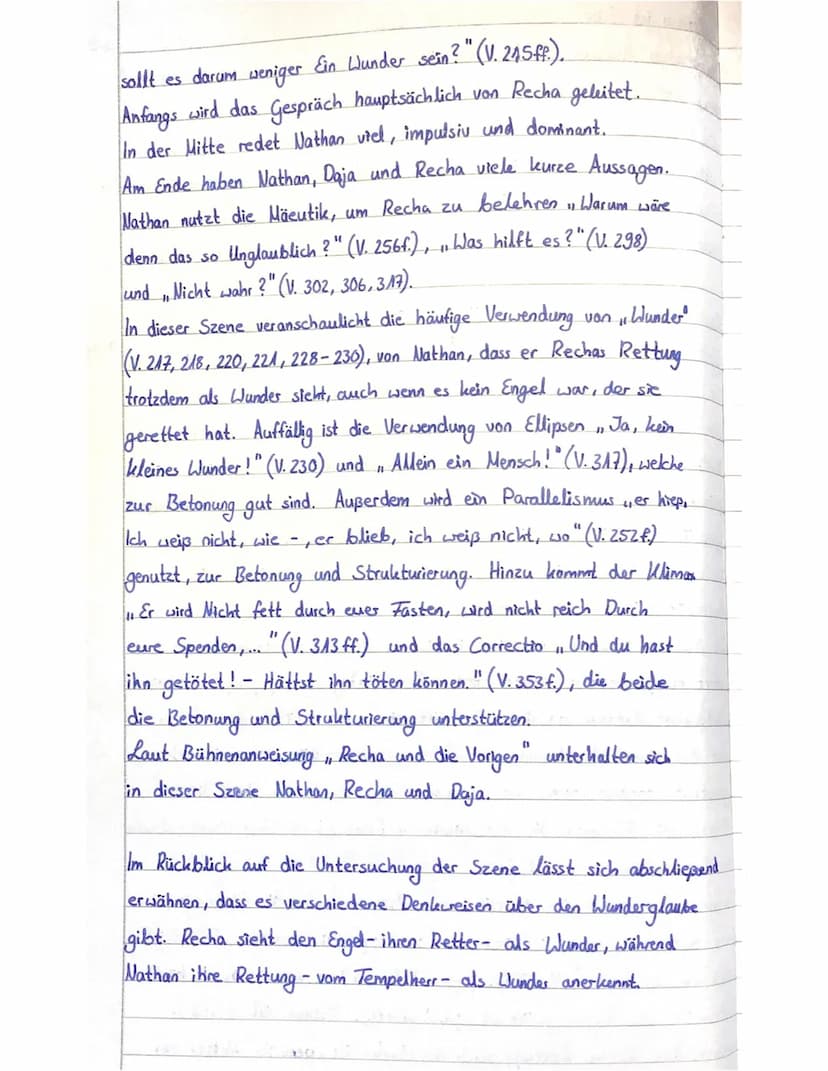 sollt es darum weniger Ein Wunder sein?" (V. 215ff.).
Anfangs wird das Gespräch hauptsächlich von Recha geleitet.
In der Mitte redet Nathan viel, impulsiv und dominant.
Am Ende haben Nathan, Daja und Recha viele kurze Aussagen.
Nathan nutzt die Mäeutik, um Recha zu belehren „Warum wäre
denn das so Unglaublich?" (V. 256f.), „Was hilft es?" (V. 298)
und „Nicht wahr?" (V. 302, 306, 317).
In dieser Szene veranschaulicht die häufige Verwendung von „Wunder"
(V. 217, 218, 220, 221, 228-230), von Nathan, dass er Rechas Rettung
trotzdem als Wunder sieht, auch wenn es kein Engel war, der sie
gerettet hat. Auffällig ist die Verwendung von Ellipsen „Ja, kein
kleines Wunder!" (V. 230) und „Allein ein Mensch!" (V. 317), welche
zur Betonung gut sind. Außerdem wird ein Parallelismus „er hieß,
Ich weiß nicht, wie -, er blieb, ich weiß nicht, wo" (V. 252f.)
genutzt, zur Betonung und Strukturierung. Hinzu kommt der Klimax
„Er wird Nicht fett durch eues Fasten, wird nicht reich Durch
eure Spenden,..." (V. 313ff.) und das Correctio „Und du hast
ihn getötet! - Hättst ihn töten können." (V. 353f.), die beide
die Betonung und Strukturierung unterstützen.
Laut Bühnenanweisung „Recha und die Vorigen" unterhalten sich
in dieser Szene Nathan, Recha und Daja.
Im Rückblick auf die Untersuchung der Szene lässt sich abschließend
erwähnen, dass es verschiedene Denkweisen über den Wunderglaube
gibt. Recha sieht den Engel- ihren Retter- als Wunder, während
Nathan ihre Rettung - vom Tempelherr - als Wunder anerkennt.